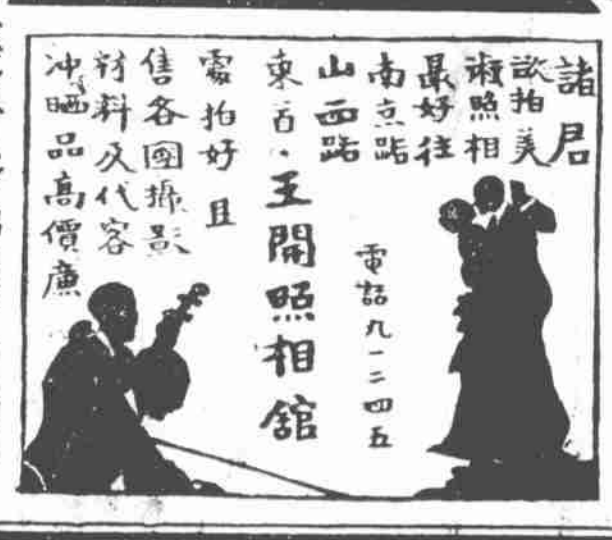 諸君
欲拍美
術照相
最好往
南京路
山西路
東首・王開照相舘
電話九一二四五
處拍好且
售各國攝影
材料及代客
冲晒品高價廉